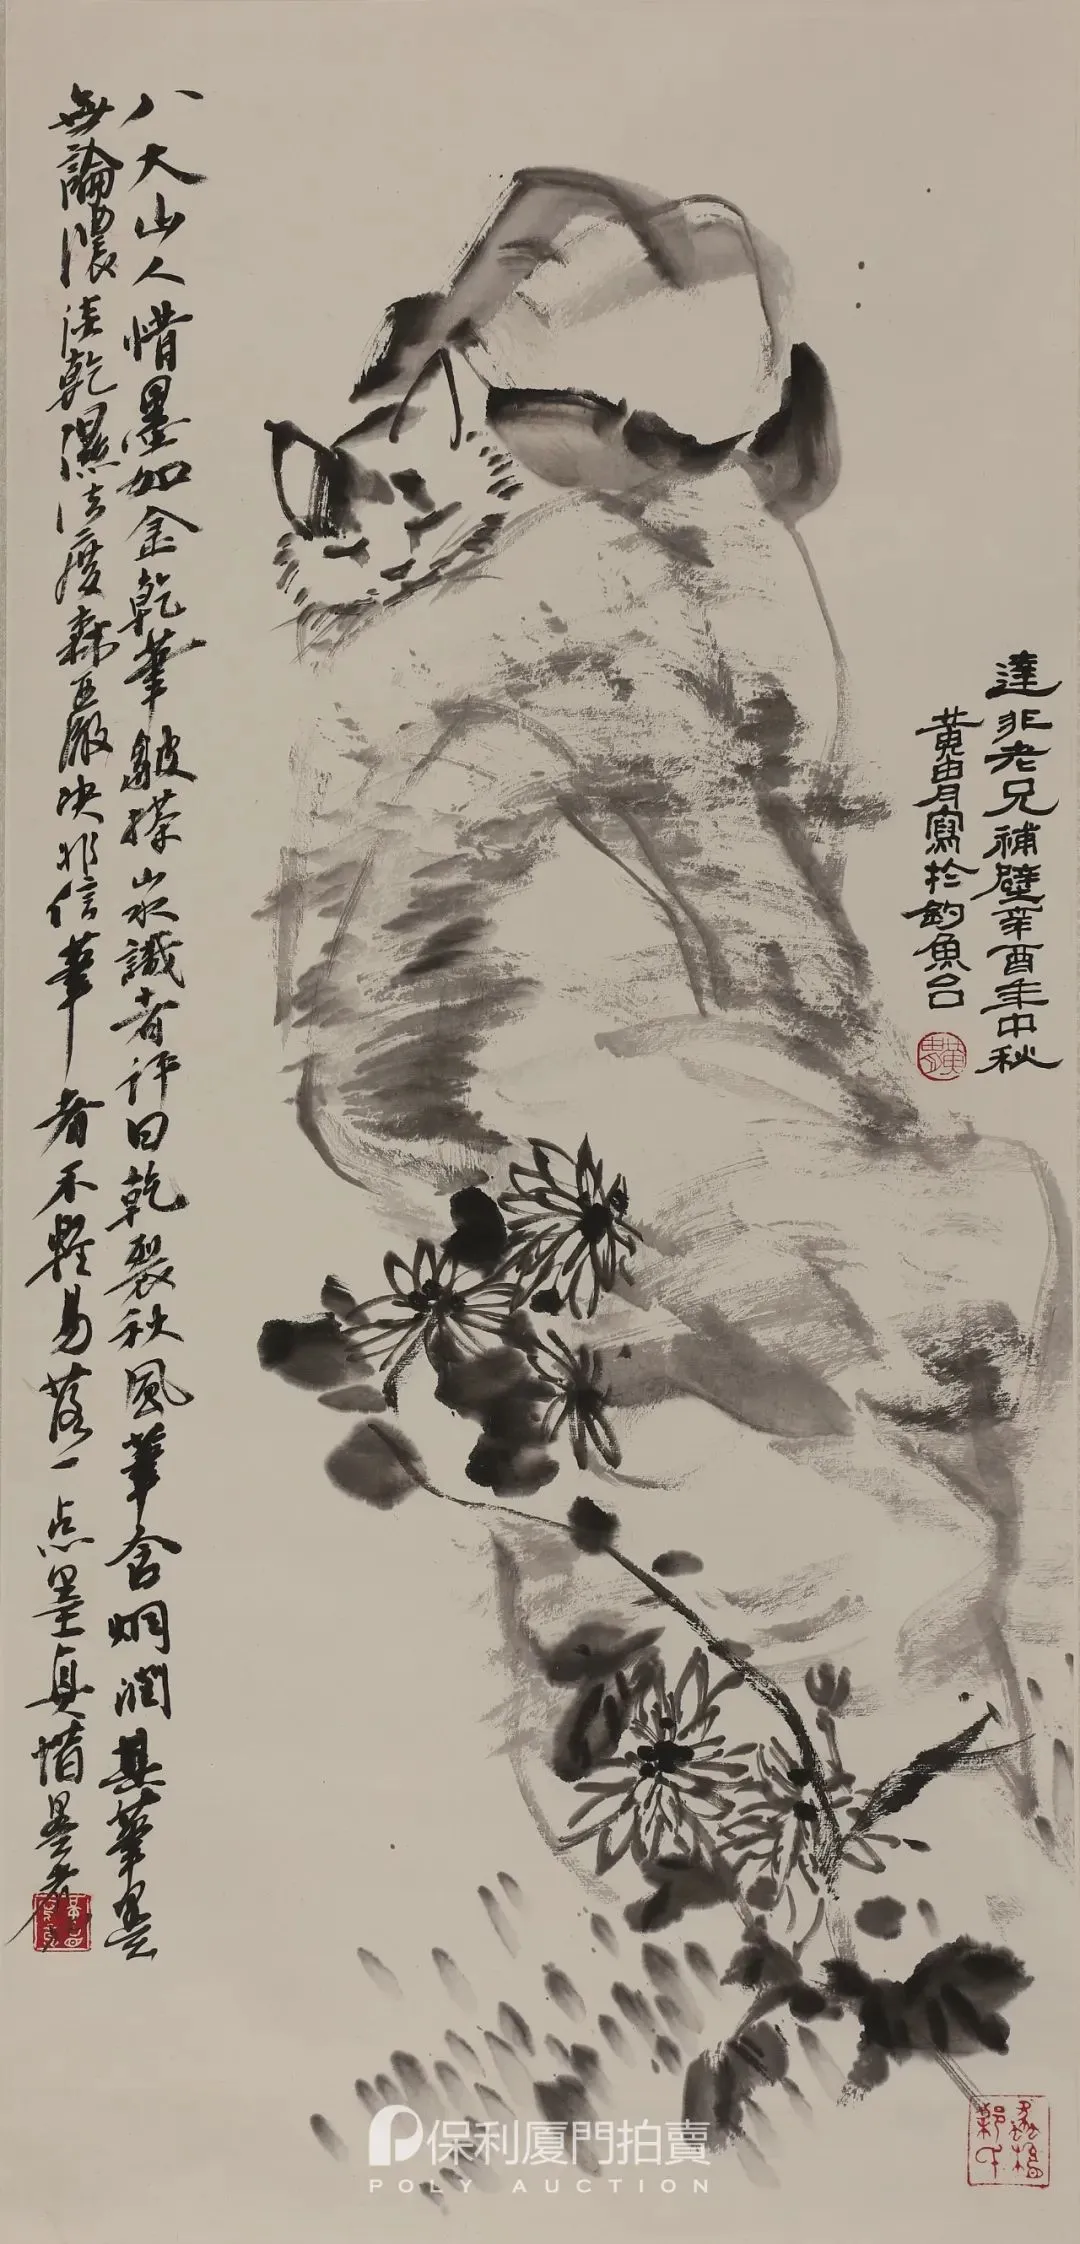 達非老兄補壁辛酉年中秋
黃胄寫於釣魚台
八大山人惜墨如金乾筆皴擦山水識者評曰乾裂秋風筆含潤其筆墨
無論濃淡乾濕法度森嚴決非信筆者不輕易落一点墨真惜墨者
保利厦門拍賣
POLY AUCTION